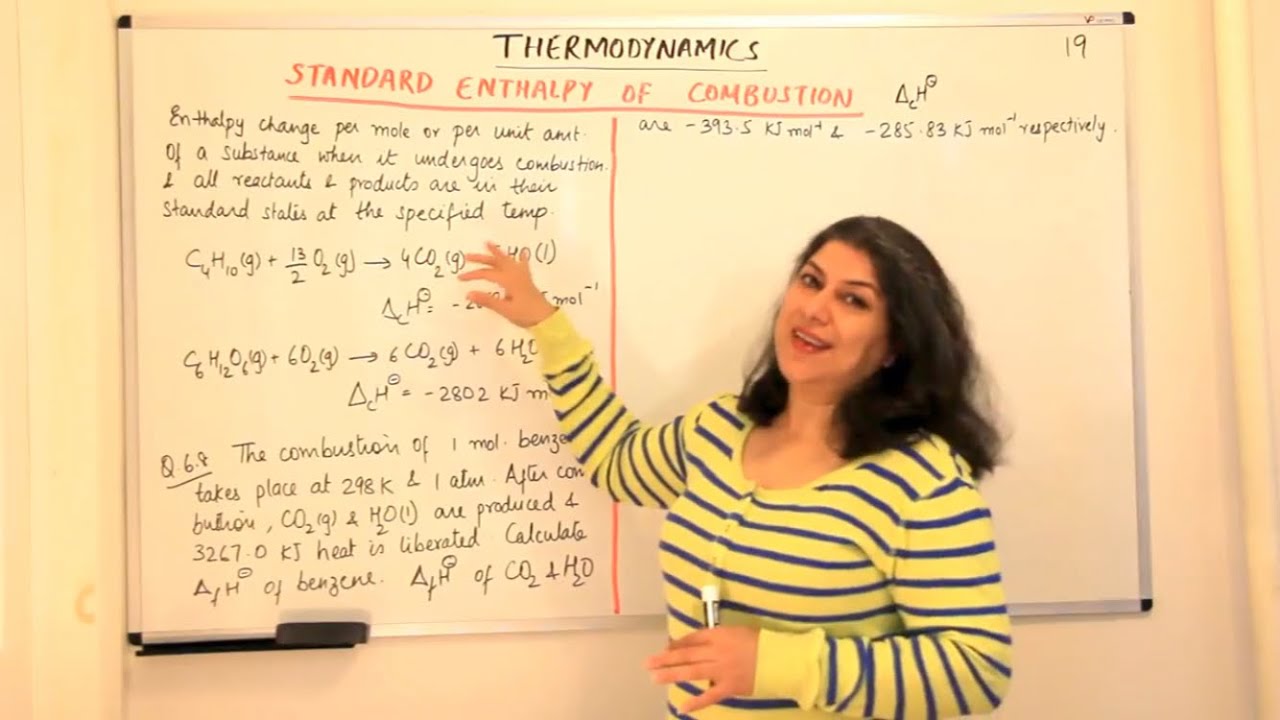 THERMODYNAMICS
19
STANDARD ENTHALPY OF COMBUSTION ΔcH⊖
Enthalpy change per mole or per unit amt.
Of a substance when it undergoes combustion.
& all reactants & products are in their
Standard states at the specified temp.
C₄H₁₀(g) + 13/2 O₂(g) → 4CO₂(g) H₂O(l)
ΔcH⊖ = mol⁻¹
C₆H₁₂O₆(g) + 6O₂(g) → 6CO₂(g) + 6H₂O
ΔcH⊖ = -2802 KJ
Q.6.8 The combustion of 1 mol. benze
takes place at 298K & 1 atm. After com
bustion, CO₂(g) & H₂O(l) are produced &
3267.0 KJ heat is liberated. Calculate
ΔfH⊖ of benzene. ΔfH⊖ of CO₂ & H₂O
are -393.5 KJ mol⁻¹ & -285.83 KJ mol⁻¹ respectively.